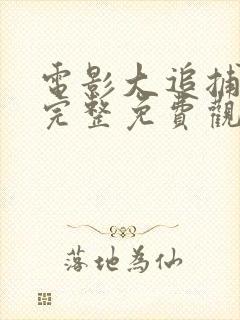 電影大追捕
完整免費觀
落地為仙